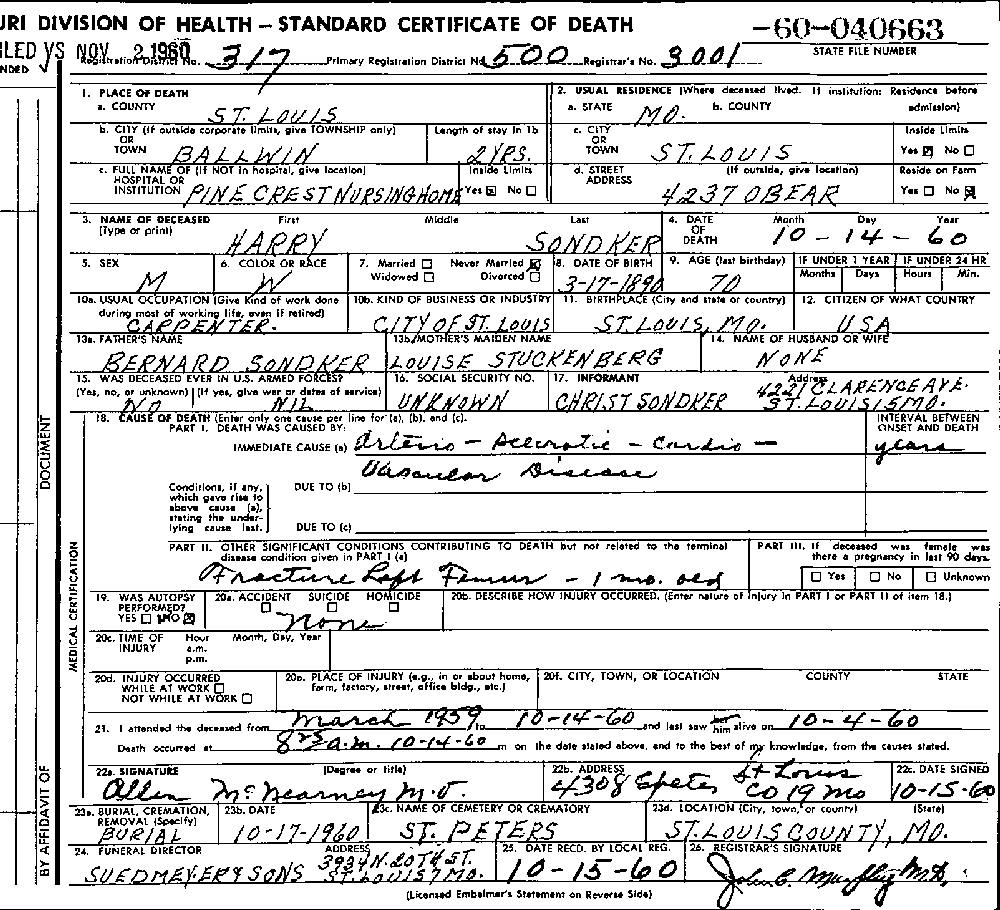 URI DIVISION OF HEALTH — STANDARD CERTIFICATE OF DEATH
-60-040663
STATE FILE NUMBER
ILED VS NOV. 2 1960
NDED
Registration District No. 317 Primary Registration District No. 500 Registrar's No. 3001
1. PLACE OF DEATH
a. COUNTY ST. LOUIS
2. USUAL RESIDENCE (Where deceased lived. If institution: Residence before admission)
a. STATE MO. b. COUNTY
b. CITY (If outside corporate limits, give TOWNSHIP only) OR TOWN BALLWIN
Length of stay in 1b 2 YRS.
c. CITY OR TOWN ST. LOUIS
Inside Limits Yes ☒ No ☐
c. FULL NAME OF (If NOT in hospital, give location) HOSPITAL OR INSTITUTION PINE CREST NURSING HOME
Inside Limits Yes ☒ No ☐
d. STREET ADDRESS (If outside, give location) 4237 OBEAR
Reside on Farm Yes ☐ No ☒
3. NAME OF DECEASED (Type or print) First Middle Last
HARRY SONDKER
4. DATE OF DEATH Month Day Year
10 - 14 - 60
5. SEX M
6. COLOR OR RACE W
7. Married ☐ Never Married ☒ Widowed ☐ Divorced ☐
8. DATE OF BIRTH 3-17-1890
9. AGE (last birthday) 70
IF UNDER 1 YEAR Months Days
IF UNDER 24 HR Hours Min.
10a. USUAL OCCUPATION (Give kind of work done during most of working life, even if retired) CARPENTER.
10b. KIND OF BUSINESS OR INDUSTRY CITY OF ST. LOUIS
11. BIRTHPLACE (City and state or country) ST. LOUIS, MO.
12. CITIZEN OF WHAT COUNTRY USA
13a. FATHER'S NAME BERNARD SONDKER
13b. MOTHER'S MAIDEN NAME LOUISE STUCKENBERG
14. NAME OF HUSBAND OR WIFE NONE
15. WAS DECEASED EVER IN U.S. ARMED FORCES? (Yes, no, or unknown) (If yes, give war or dates of service) NO NIL
16. SOCIAL SECURITY NO. UNKNOWN
17. INFORMANT CHRIST SONDKER
Address 4221 CLARENCE AVE. ST. LOUIS 15 MO.
18. CAUSE OF DEATH (Enter only one cause per line for (a), (b), and (c).
PART I. DEATH WAS CAUSED BY:
INTERVAL BETWEEN ONSET AND DEATH
IMMEDIATE CAUSE (a) Arterio - Sclerotic - Cardio - years
Vascular Disease
Conditions, if any, which gave rise to above cause (a), stating the underlying cause last.
DUE TO (b)
DUE TO (c)
PART II. OTHER SIGNIFICANT CONDITIONS CONTRIBUTING TO DEATH but not related to the terminal disease condition given in PART I (a)
Fracture Left Femur - 1 mo. old
PART III. If deceased was female was there a pregnancy in last 90 days.
☐ Yes ☐ No ☐ Unknown
19. WAS AUTOPSY PERFORMED? YES ☐ NO ☒
20a. ACCIDENT ☐ SUICIDE ☐ HOMICIDE ☐
none
20b. DESCRIBE HOW INJURY OCCURRED. (Enter nature of injury in PART I or PART II of item 18.)
20c. TIME OF INJURY Hour a.m. p.m. Month, Day, Year
20d. INJURY OCCURRED WHILE AT WORK ☐ NOT WHILE AT WORK ☐
20e. PLACE OF INJURY (e.g., in or about home, farm, factory, street, office bldg., etc.)
20f. CITY, TOWN, OR LOCATION COUNTY STATE
21. I attended the deceased from March 1959 to 10-14-60 and last saw him alive on 10-4-60
Death occurred at a.m. 10-14-60 m on the date stated above, and to the best of my knowledge, from the causes stated.
22a. SIGNATURE (Degree or title) Allen McNearney M.D.
22b. ADDRESS 4308 St Louis CO 19 Mo
22c. DATE SIGNED 10-15-60
23a. BURIAL, CREMATION, REMOVAL (Specify) BURIAL
23b. DATE 10-17-1960
23c. NAME OF CEMETERY OR CREMATORY ST. PETERS
23d. LOCATION (City, town, or county) (State) ST. LOUIS COUNTY, MO.
24. FUNERAL DIRECTOR SUEDMEYER & SONS
ADDRESS 3934 N. 20TH ST. ST. LOUIS 7 MO.
25. DATE RECD. BY LOCAL REG. 10-15-60
26. REGISTRAR'S SIGNATURE John C. Murphy M.D.
(Licensed Embalmer's Statement on Reverse Side)
DOCUMENT
MEDICAL CERTIFICATION
BY AFFIDAVIT OF